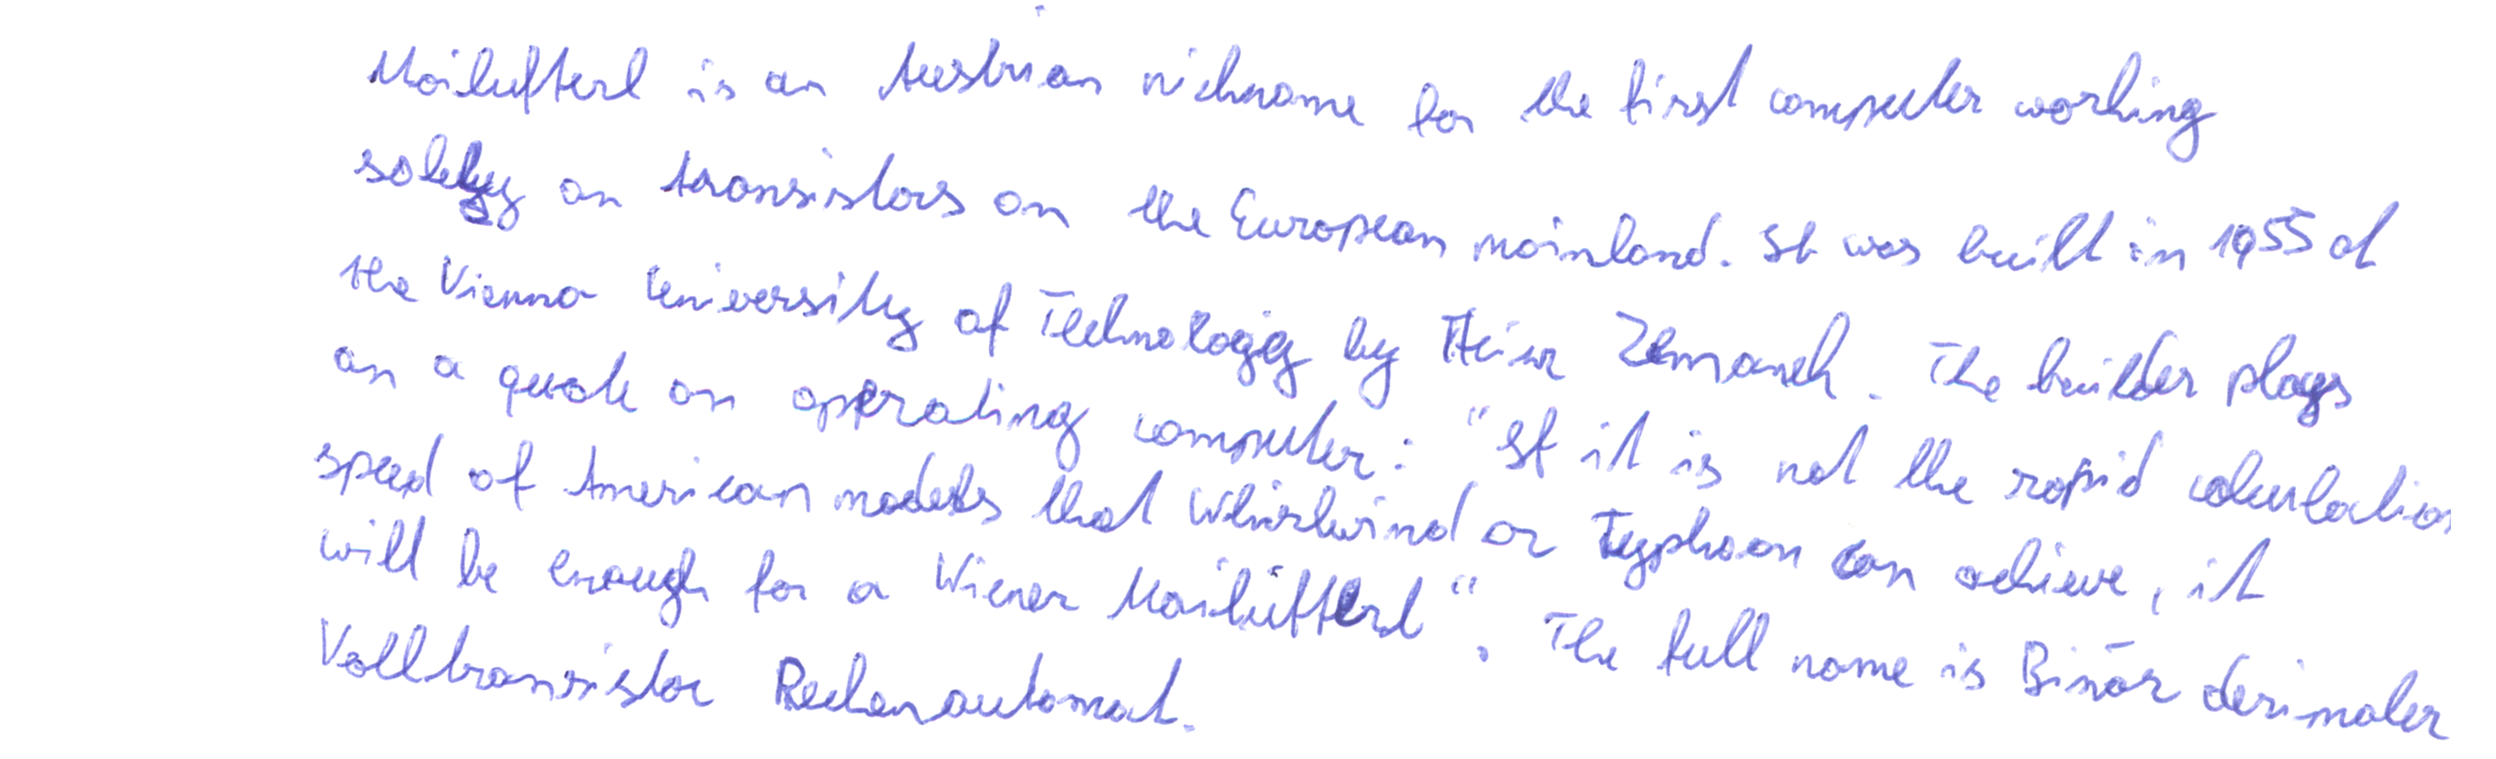 Mailüfterl is an Austrian nickname for the first computer working
solely on transistors on the European mainland. It was built in 1955 at
the Vienna University of Technology by Heinz Zemanek. The builder plays
on a quote on operating computer: "If it is not the rapid calculation
speed of American models that Whirlwind or Typhoon can achieve, it
will be enough for a Wiener Mailüfterl". The full name is Binär dezimaler
Volltransistor Rechenautomat.